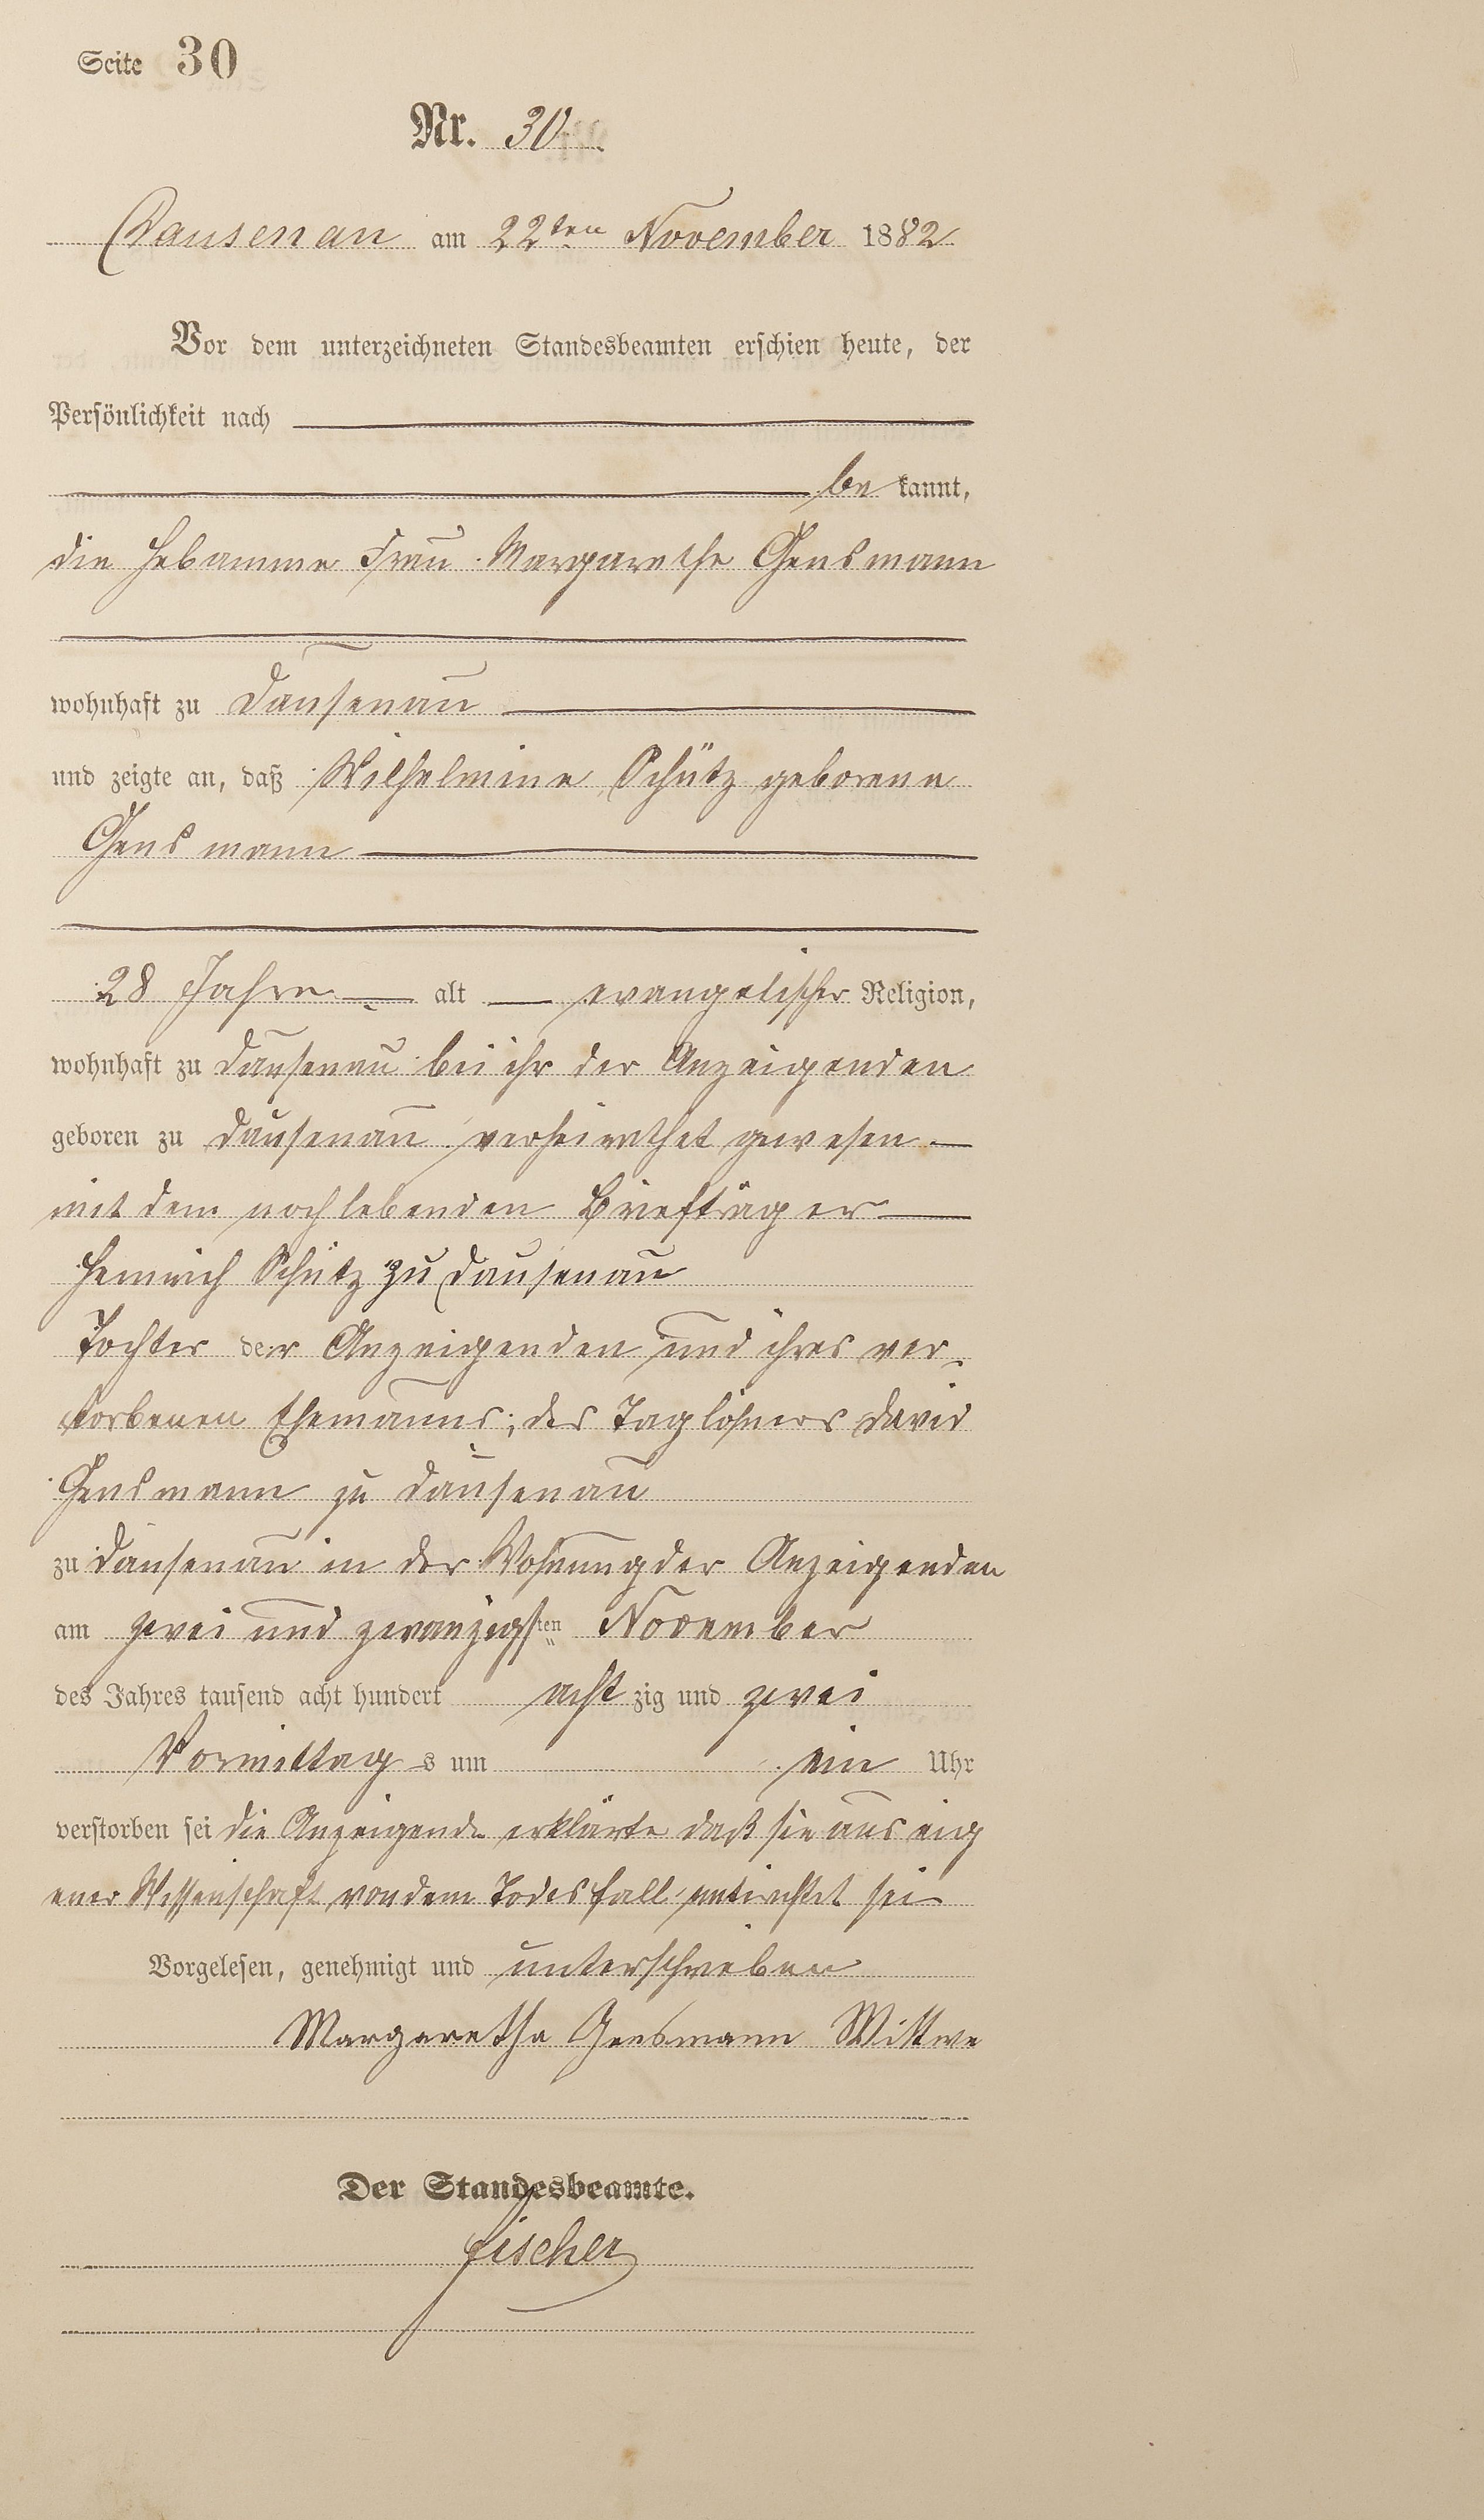 Seite 30
Nr. 30
Dausenau am 22ten November 1882
Vor dem unterzeichneten Standesbeamten erschien heute, der
Persönlichkeit nach
be kannt,
die Hebamme Frau Margarethe Gensmann
wohnhaft zu Dausenau
und zeigte an, daß Wilhelmine Schütz geborene
Gensmann
28 Jahre alt evangelischer Religion,
wohnhaft zu Dausenau bei ihr der Anzeigenden
geboren zu Dausenau verheirathet gewesen
mit dem noch lebenden Briefträger
Heinrich Schütz zu Dausenau
Tochter der Anzeigenden und ihres ver-
storbenen Ehemanns, des Taglöhners David
Gensmann zu Dausenau
zu Dausenau in der Wohnung der Anzeigenden
am zwei und zwanzigsten November
des Jahres tausend acht hundert acht zig und zwei
Vormittag s um ein Uhr
verstorben sei die Anzeigende erklärte daß sie aus eig
ener Wissenschaft von dem Todesfall untirichtet sei
Vorgelesen, genehmigt und unterschrieben
Margaretha Gensmann Wittwe
Der Standesbeamte.
Fischer